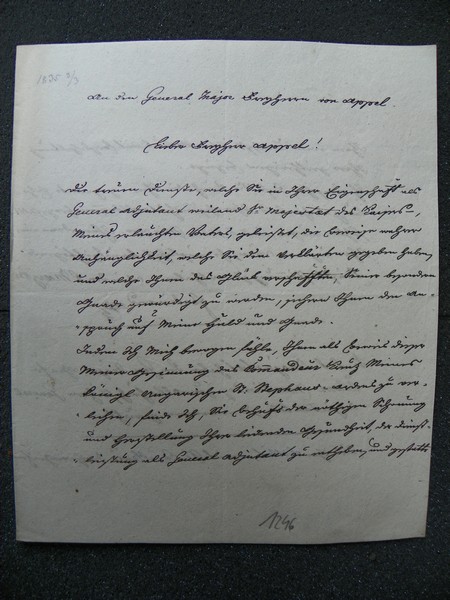 1835 9/3
An den General Major Freyherrn von Appel.
Lieber Freyherr Appel!
Die treuen Dienste, welche Sie in Ihrer Eigenschaft als
General Adjutant weiland Sr Majestät des Kaisers,
Meines erlauchten Vaters, geleistet, die Beweise wahrer
Anhänglichkeit, welche Sie dem Verklärten gegeben haben,
und welche Ihnen das Glück verschafften, Seiner besonderen
Gnade gewürdigt zu werden, sichern Ihnen den An-
spruch auf Meine Huld und Gnade.
Indem Ich Mich bewogen fühle, Ihnen als Beweis dieser
Meiner Gesinnung das Commandeur Kreuz Meines
königl. Ungarischen St. Stephans-Ordens zu ver-
leihen, finde Ich, Sie behufs der nöthigen Schonung
und Herstellung Ihrer leidenden Gesundheit, der Dienst-
leistung als General Adjutant zu entheben, und gestatte
1246